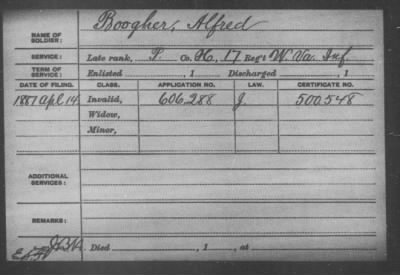 Boogher, Alfred
NAME OF SOLDIER:
SERVICE: Late rank, P. Co. H, 17 Reg't W. Va. Inf.
TERM OF SERVICE: Enlisted , 1 Discharged , 1
DATE OF FILING. CLASS. APPLICATION NO. LAW. CERTIFICATE NO.
1887 Apl 14. Invalid, 606,288 J. 500,548
Widow,
Minor,
ADDITIONAL SERVICES:
REMARKS:
Died , 1 , at